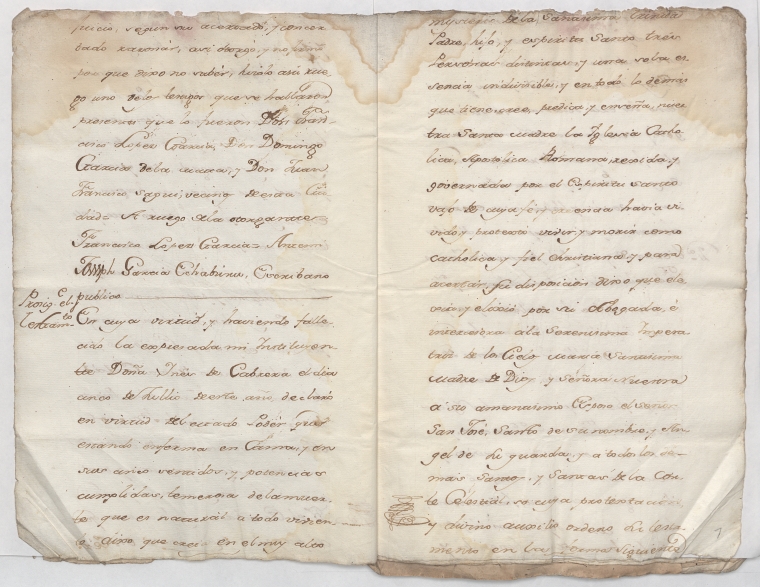 juicio, segun su acuerdo, y concer
tado razonar, así otorgó, y no firmó
por que dixo no saber, hizolo asu rue
go uno delos testigos que se hallaron
presentes que lo fueron Don Fran
cisco Lopez Garcia, Don Domingo
Garcia dela y Don Juan
Francisco vecinos de esta Ciu
dad = A ruego dela otorgante =
Francisco Lopez Garcia = Antemi
Joseph Garcia Escribano
publico
Prosig.e el
testam.to
En cuya virtud, y haviendo falle
cido la expresada mi Instituyen
te Doña Ines de Cabrera el dia
cinco de Jullio de este año, declaró
en virtud del citado Poder, que
estando enferma en Cama, y en
sus cinco sentidos, y potencias
cumplidas, temerosa dela muer
te que es natural a todo vivien
te dixo, que creia en el muy alto
misterio de la Santisima Trinidad
Padre, hijo, y espiritu Santo tres
Personas distintas, y una sola e
sencia indivisible, y en todo lo demás
que tiene, cree, predica, y enseña, nues
tra Santa madre la Yglesia Catho
lica, Apostolica Romana, regida, y
governada por el Espiritu Santo
vajo de cuya fé, y crehencia havia vi
vido, y protestó vivir, y morir como
catholica, y fiel christiana, y para
acertar su disposicion dixo que ele
via, y elixió por su Abogada, é
intercesora ála Serenisima Ympera
triz de los Cielos Maria Santisima
Madre de Dios, y Señora Nuestra
a su amantisimo Esposo el señor
San José, Santo de su nombre, y An
gel de su guarda, y a todos los de
mas Santos, y Santas de la Cor
te Celestial, vajo cuya protestacion
y divino auxilio ordenó su testa
mento en la forma siguiente